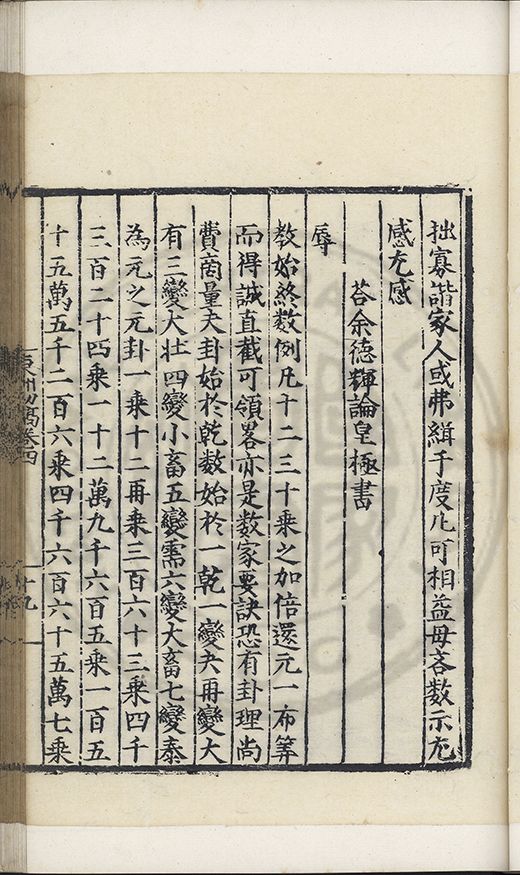 拙寡諧家人或弗緝于度凡可相益毋吝数示尤
感尤感
荅余德輝論皇極書
辱
教始終数例凡十二三十乘之加倍還元一布筭
而得誠直截可領畧亦是数家要訣恐有卦理尚
費商量夫卦始於乾数始於一乾一變夬再變大
有三變大壯四變小畜五變需六變大畜七變泰
為元之元卦一乘十二再乘三百六十三乘四千
三百二十四乘一十二萬九千六百五乘一百五
十五萬五千二百六乘四千六百六十五萬七乘
卷四
十九